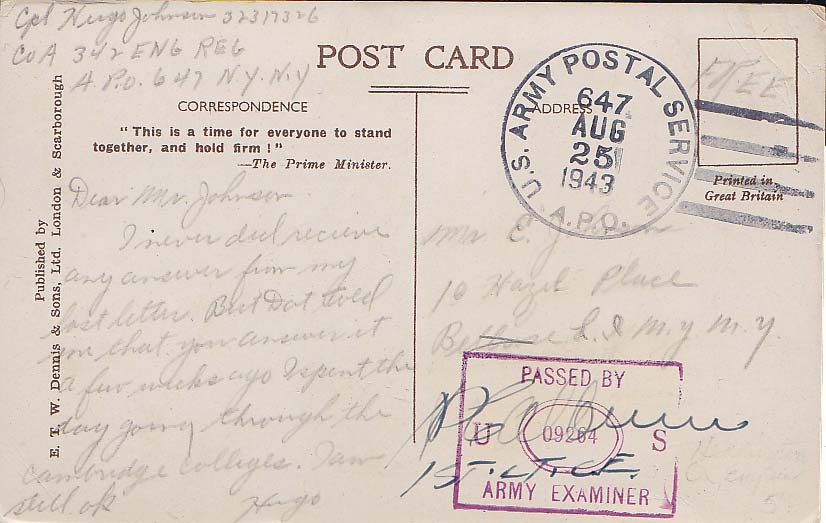 Cpl Hugo Johnson 32319326
Co A 342 ENG REG
A.P.O. 647 N.Y. N.Y
POST CARD
CORRESPONDENCE
"This is a time for everyone to stand
together, and hold firm !"
—The Prime Minister.
Dear Mr. Johnson
I never did recieve
any answer from my
last letter. But Dot told
me that you answer it
a few weeks ago I spent the
day going through the
cambridge colleges. I am
still ok
Hugo
Published by
E. T. W. Dennis & Sons, Ltd. London & Scarborough
ADDRESS
U.S. ARMY POSTAL SERVICE
647
AUG
25
1943
A.P.O.
FREE
Printed in
Great Britain
Mr E.
10 Hazel Place
L. I N.Y. N.Y.
PASSED BY
U 09264 S
ARMY EXAMINER
1ST. LT. C.E.